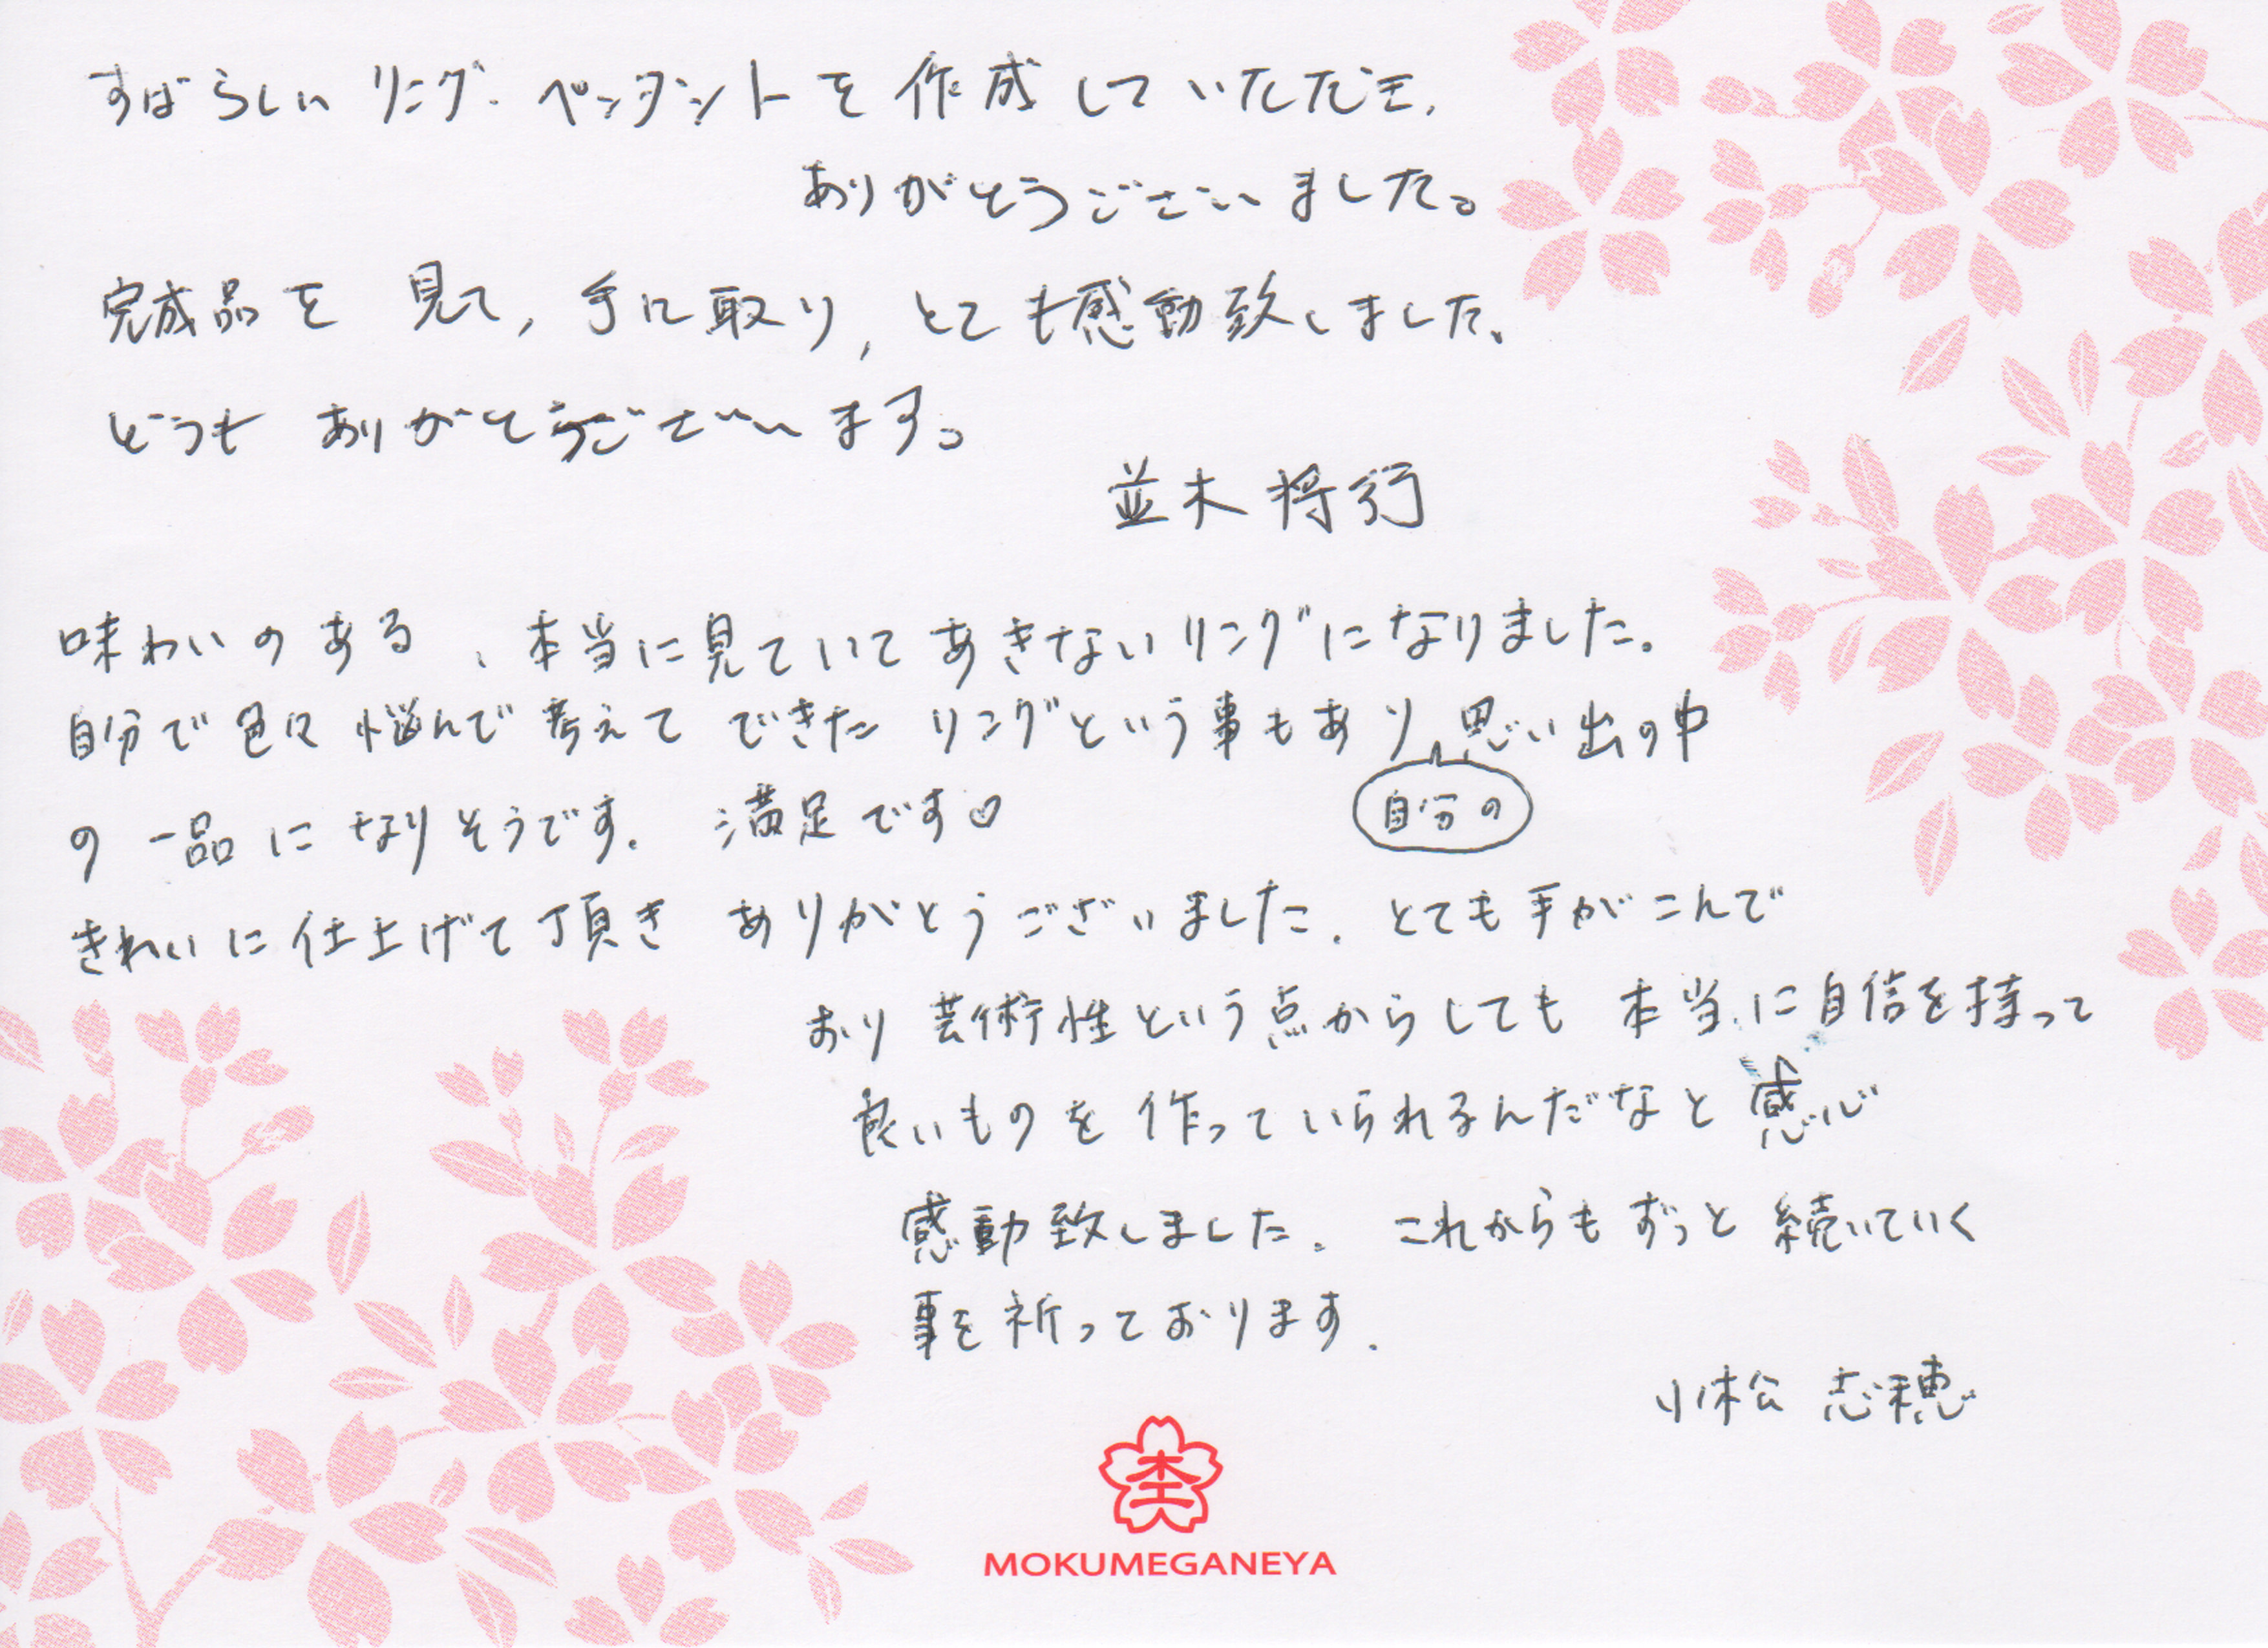 すばらしい リング・ペンダントを 作成していただき、
ありがとうございました。
完成品を 見て, 手に取り, とても感動致しました。
どうも ありがとうございます。
並木 将行
味わいのある 、本当に見ていてあきないリングになりました。
自分で色々 悩んで 考えて できた リングという事もあり 思い出の中
自分の
の 一品に なりそうです. 満足です♡
きれいに仕上げて頂き ありがとうございました. とても手がこんで
おり 芸術性という点からしても 本当に自信を持って
良いものを 作っていられるんだなと 感心
感動致しました. これからもずっと 続いていく
事を祈っております.
小松 志穂
杢
MOKUMEGANEYA